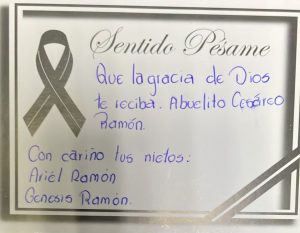 Sentido Pésame
Que la gracia de Dios
te reciba. Abuelito Cesáreo
Ramón.
Con cariño tus nietos:
Ariel Ramón
Genesis Ramón.